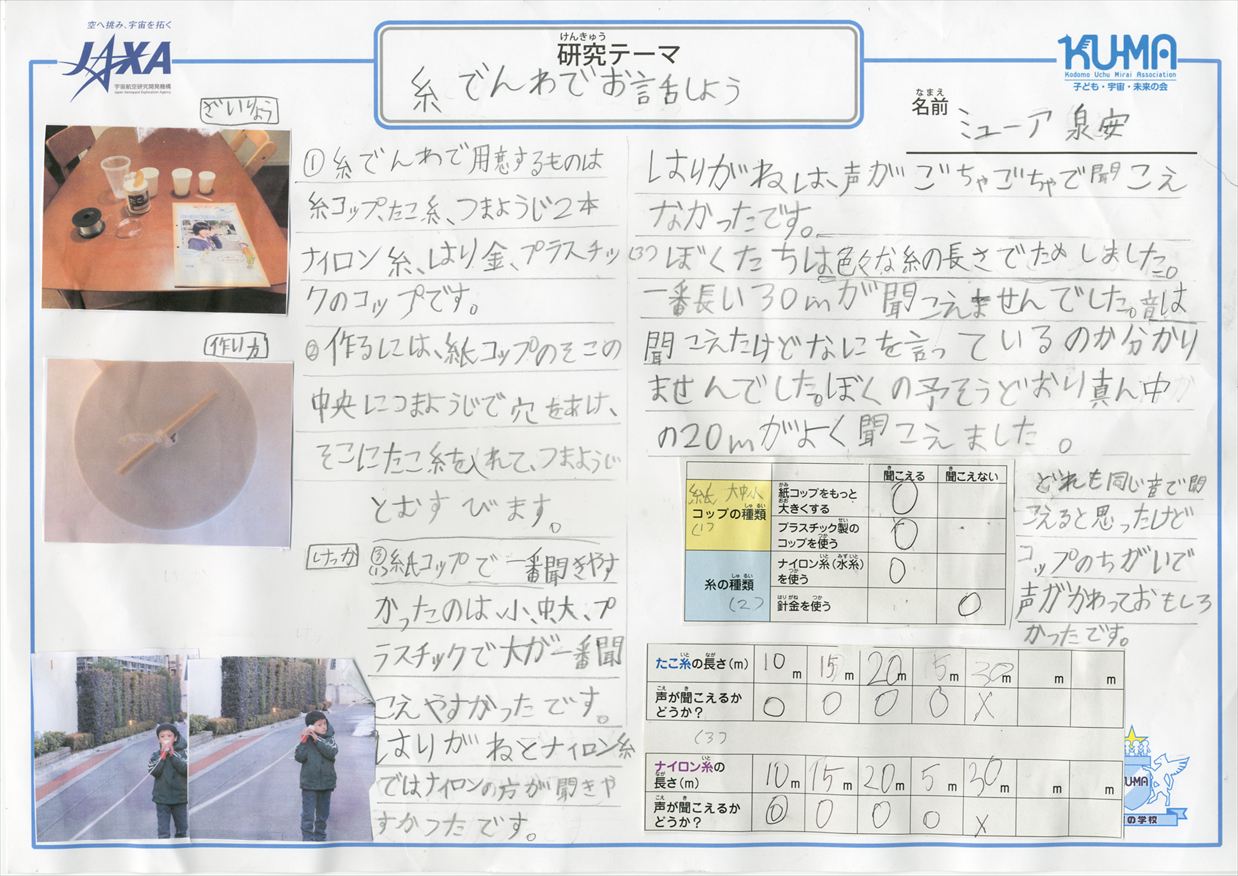 空へ挑み、宇宙を拓く
JAXA
宇宙航空研究開発機構
Japan Aerospace Exploration Agency
けんきゅう
研究テーマ
糸でんわでお話しよう
KU-MA
Kodomo Uchu Mirai Association
子ども・宇宙・未来の会
なまえ
名前
ミューア 泉安
ざいりょう
① 糸でんわで用意するものは
糸コップ、たこ糸、つまようじ2本
ナイロン糸、はり金、プラスチッ
クのコップです。
作り方
② 作るには、紙コップのそこの
中央につまようじで穴をあけ、
そこにたこ糸を入れて、つまようじ
とむすびます。
けっか
③(1)紙コップで一番聞きやす
かったのは小、中、大、プ
ラスチックで大が一番聞
こえやすかったです。
はりがねとナイロン糸
ではナイロンの方が聞きや
すかったです。
はりがねは、声がごちゃごちゃで聞こえ
なかったです。
(3)ぼくたちは色々な糸の長さでためしました。
一番長い30mが聞こえませんでした。音は
聞こえたけどなにを言っているのか分かり
ませんでした。ぼくの予そうどおり真ん中
の20mがよく聞こえました。
聞こえる 聞こえない
紙 大中小
コップの種類
(1)
紙コップをもっと
大きくする ○
プラスチック製の
コップを使う ○
糸の種類
(2)
ナイロン糸(水糸)
を使う ○
針金を使う ○
どれも同じ音で聞
こえると思ったけど
コップのちがいで
声がかわっておもしろ
かったです。
たこ糸の長さ(m) 10m 15m 20m 5m 30m m m
声が聞こえるか
どうか? ○ ○ ○ ○ ×
(3)
ナイロン糸の
長さ(m) 10m 15m 20m 5m 30m m m
声が聞こえるか
どうか? ○ ○ ○ ○ ×
KUMA
の学校